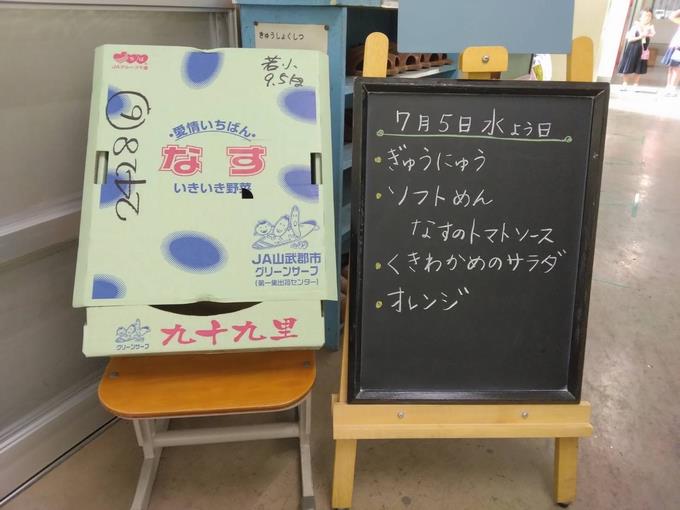 きゅうしょくしつ
JAグループ千葉
若小
9.5キロ
・愛情いちばん・
なす
いきいき野菜
JA山武郡市
グリーンサーフ
(第一集出荷センター)
グリーンサーフ
九十九里
7月5日水よう日
・ぎゅうにゅう
・ソフトめん
なすのトマトソース
・くきわかめのサラダ
・オレンジ